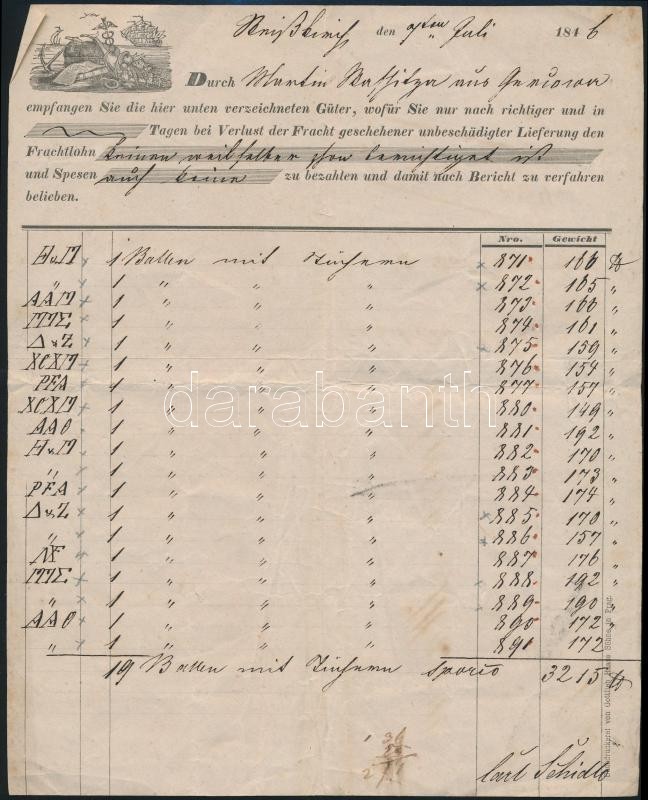 Weißkirch den 9ten Juli 1846
Durch Martin aus
empfangen Sie die hier unten verzeichneten Güter, wofür Sie nur nach richtiger und in
Tagen bei Verlust der Fracht geschehener unbeschädigter Lieferung den
Frachtlohn keinen weil selber schon berichtiget ist
und Spesen auch keine zu bezahlen und damit nach Bericht zu verfahren
belieben.
Nro. Gewicht
H.v.M x 1 Ballen mit Tüchern x 871 166 ℔
" x 1 " " " x 872 165 "
AAM x 1 " " " 873 166 "
ΠΠΣ x 1 " " " 874 161 "
Δ.v.Z x 1 " " " x 875 159 "
XCXM x 1 " " " 876 154 "
PFA 1 " " " 877 157 "
XCXM x 1 " " " 880 149 "
AAO x 1 " " " 881 192 "
H.v.M x 1 " " " 882 170 "
" x 1 " " " 883 173 "
PFA x 1 " " " 884 174 "
Δ.v.Z x 1 " " " x 885 170 "
" x 1 " " " x 886 157 "
ΛF x 1 " " " 887 176 "
ΠΠΣ x 1 " " " x 888 192 "
" x 1 " " " 889 190 "
AAO x 1 " " " 890 172 "
" x 1 " " " 891 172 "
19 Ballen mit Tüchern sporco 3215 ℔
Carl Schidlo
Söhne in Prag.
darabanth